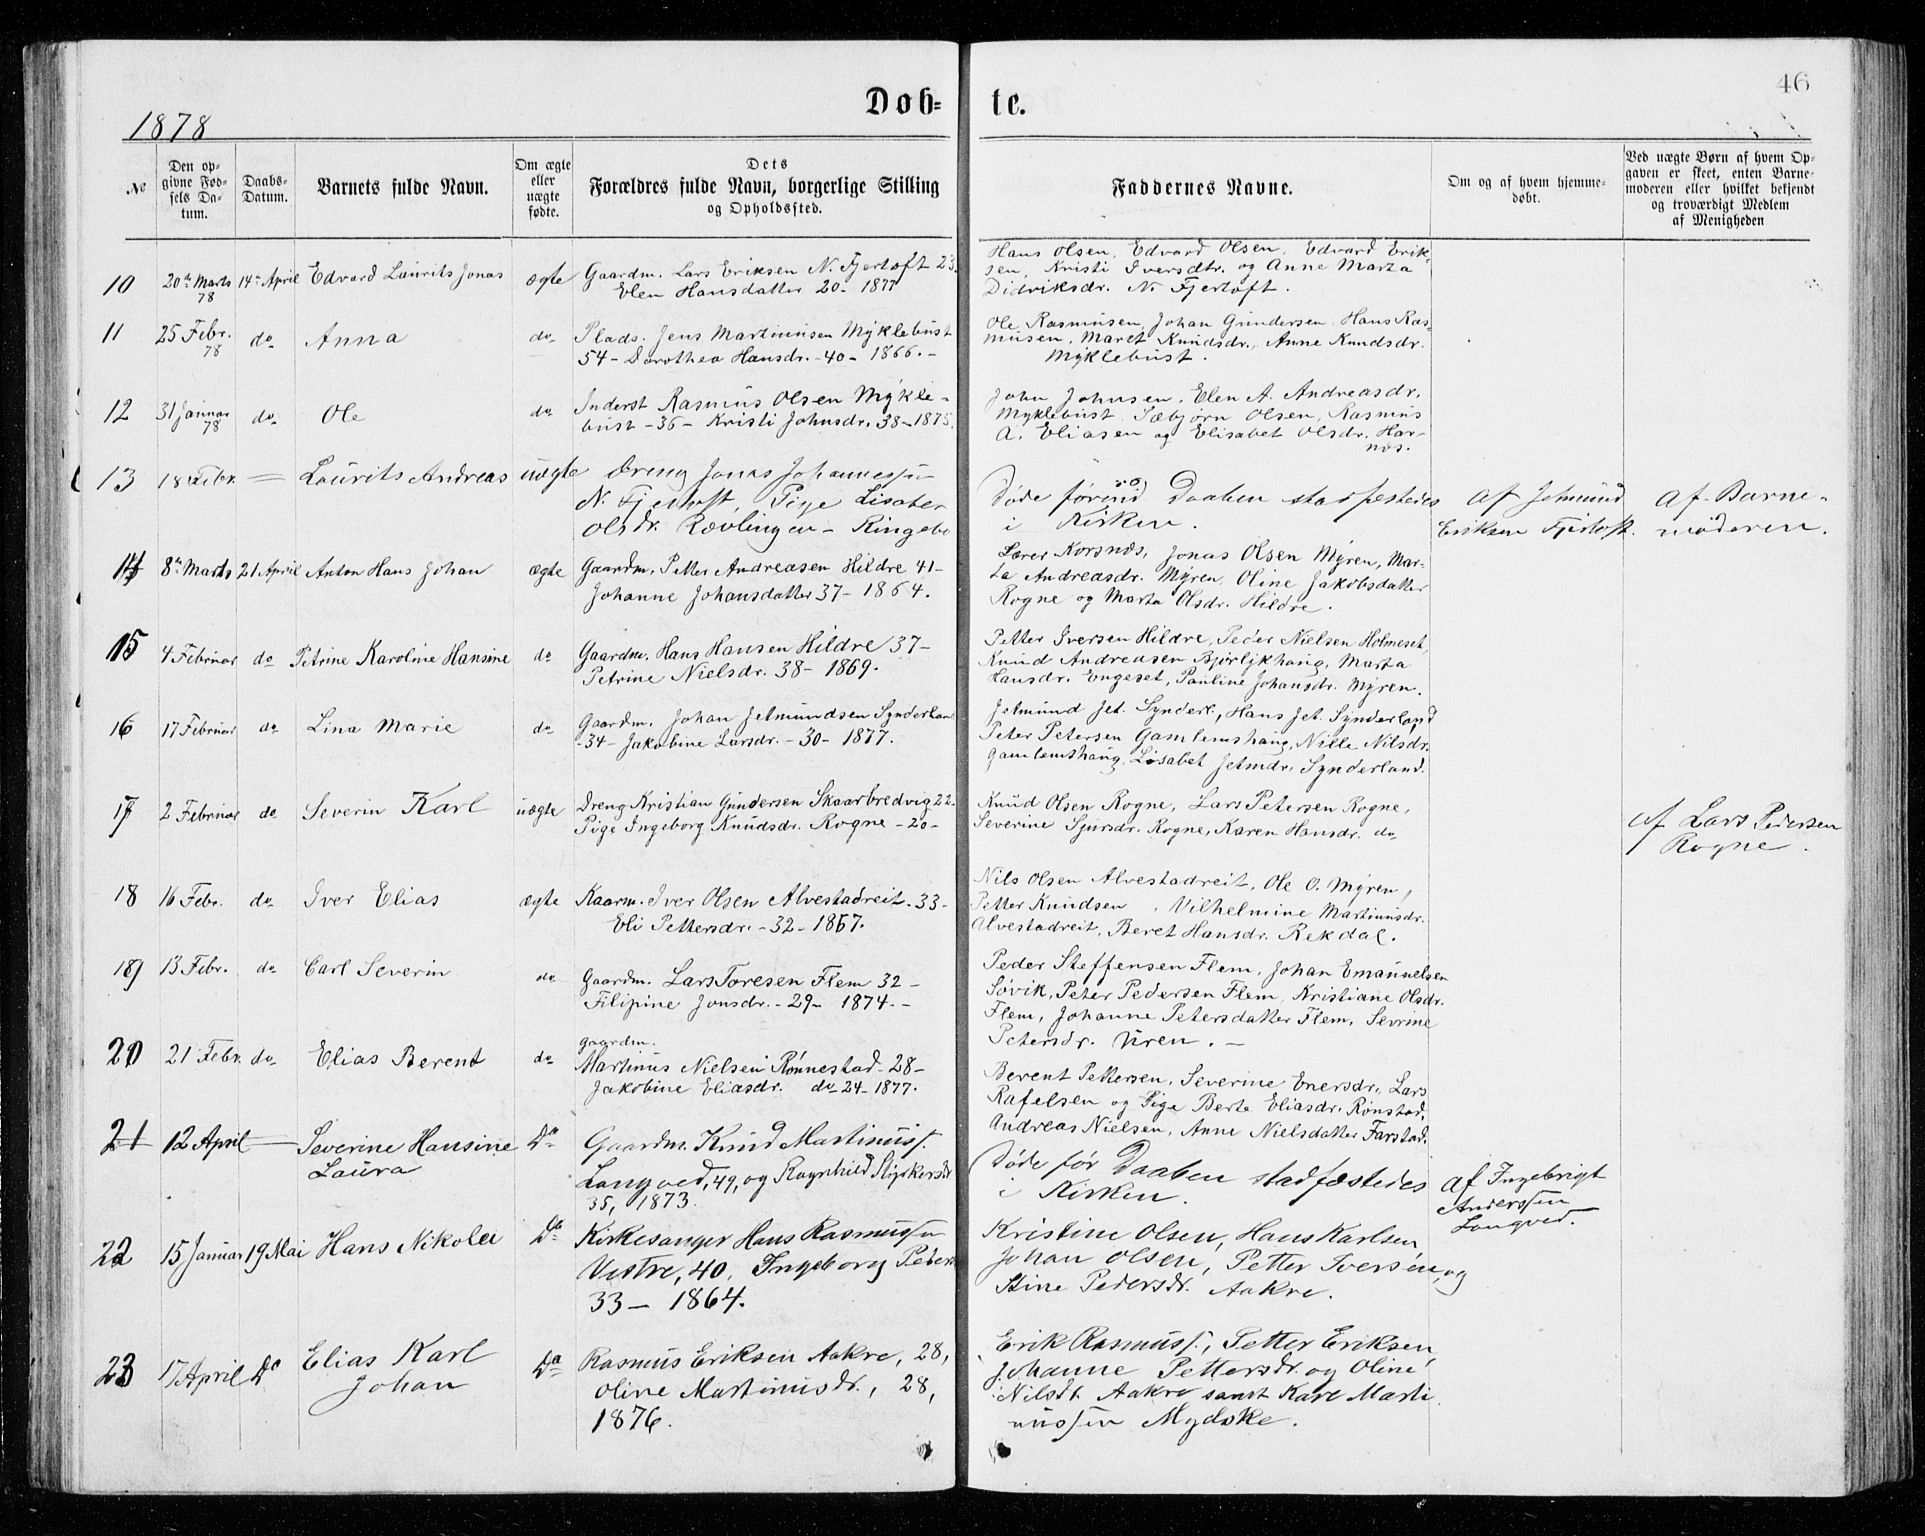 46
Døb=
te.
1878
No
Den op-
givne Fød-
sels Da-
tum.
Daabs-
Datum.
Barnets fulde Navn.
Om ægte
eller
uægte
fødte.
Dets
Forældres fulde Navn, borgerlige Stilling
og Opholdssted.
Faddernes Navne.
Om og af hvem hjemme-
døbt.
Ved uægte Børn af hvem Op-
gaven er skeet, enten Barne-
moderen eller hvilket bekjendt
og troværdigt Medlem
af Menigheden
10
20de Marts
78
14de April
Edvard Laurits Jonas
ægte
Gaardm. Lars Eriksen N. Fjertoft 23
Elen Hansdatter 20 - 1877
Hans Olsen, Edvard Olsen, Edvard Erik-
sen, Kristi Iversdtr. og Anne Marta
Didriksdr. N. Fjertoft.
11
25 Febr.
78
do
Anna
do
Plads. Jens Martinusen Myklebust
54 - Dorothea Hansdr. - 40 - 1866. -
Ole Rasmusen, Johan Gundersen, Hans Ras-
musen, Maret Knudsdr., Anne Knudsdr.
Myklebust.
12
31 Januar
78
do
Ole
do
Inderst Rasmus Olsen Mykle-
bust - 36 - Kristi Johnsdr. 38 - 1875.
John Johnsen, Elen A. Andreasdr.
Myklebust, Sæbjørn Olsen, Rasmus
A. Eliasen og Elisabet Olsdr. Har-
næs.
13
18 Febr.
Laurits Andreas
uægte
Dreng Jonas Johannessen
N. Fjertoft, Pige Lisabet
Olsdr. Rævlingen - Ringebo
Døde førend Daaben stadfæstedes
i Kirken.
Af Jetmund
Eriksen Fjertoft.
Af Barne-
moderen.
14
8de Marts
21 April
Anton Hans Johan
ægte
Gaardm. Petter Andreasen Hildre 41 -
Johanne Johansdatter 37 - 1864.
Lærer Korsnæs, Jonas Olsen Myren, Mar-
ta Andreasdr. Myren, Oline Jakobsdatter
Rogne og Marta Olsdr. Hildre.
15
4 Februar
do
Petrine Karoline Hansine
do
Gaardm. Hans Hansen Hildre 37 -
Petrine Nielsdr. 38 - 1869.
Petter Iversen Hildre, Peder Nielsen Holmeset,
Knud Andreasen Bjørlykhaug, Marta
Hansdr. Engeset, Pauline Johansdr. Myren.
16
17 Februar
do
Lina Marie
do
Gaardm. Johan Jetmundsen Synderland
- 34 - Jakobine Larsdr. - 30 - 1877.
Jetmund Jet. Synderl., Hans Jet. Synderland
Peter Petersen Gamlemshaug, Nille Nilsdr.
Gamlemshaug, Lisabet Jetmdr. Synderland.
17
2 Februar
do
Severin Karl
uægte
Dreng Kristian Gundersen Skaarbredvig 22 -
Pige Ingeborg Knudsdr. Rogne - 20 -
Knud Olsen Rogne, Lars Petersen Rogne,
Severine Sjursdr. Rogne, Karen Hansdr. do
Af Lars Pedersen
Rogne.
18
16 Febr.
do
Iver Elias
ægte
Kaarm. Iver Olsen Alvestadreit - 33 -
Eli Pettersdr. - 32 - 1867.
Nils Olsen Alvestadreit, Ole O. Myren,
Petter Knudsen, Vilhelmine Martinusdr.
Alvestadreit, Beret Hansdr. Rekdal.
19
13 Febr.
do
Carl Severin
do
Gaardm. Lars Toresen Flem 32 -
Filipine Jonsdr. - 29 - 1874. -
Peder Steffensen Flem, Johan Emanuelsen
Søvik, Peter Pedersen Flem, Kristiane Olsdr.
Flem, Johanne Petersdatter Flem, Sevrine
Petersdr. Uren. -
20
21 Febr.
do
Elias Berent
do
Gaardm.
Martinus Nielsen Rønnestad - 28 -
Jakobine Eliasdr. do - 24 - 1877.
Berent Pettersen, Severine Enersdr., Lars
Rafelsen og Pige Berte Eliasdr. Rønstad,
Andreas Nielsen, Anne Nielsdatter Farstad.
21
12 April
Severine Hansine
Laura
Do
Gaardm. Knud Martinuss.
Longved, 49, og Ragnhild Styrkersdr
35, 1873.
Døde før Daaben stadfæstedes
i Kirken.
Af Ingebrigt
Anderssen
Longved.
22
15 Januar
19 Mai
Hans Nikolai
Do
Kirkesanger Hans Rasmussen
Vestre, 40, Ingeborg Peders
33 - 1864.
Kristine Olsen, Hans Karlsen,
Johan Olsen, Petter Iversen, og
Stine Pedersdr. Aakre.
23
17 April
Do
Elias Karl
Johan
Do
Rasmus Eriksen Aakre, 28,
Oline Martinusdr., 28,
1876.
Erik Rasmuss., Petter Eriksen,
Johanne Pettersdr. og Oline
Nilsdt. Aakre samt Karl Marti
nussen Mydske.